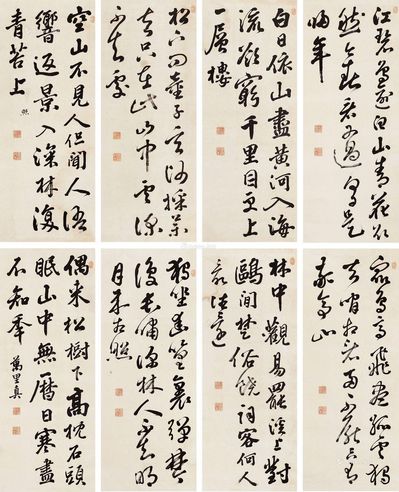 江碧鳥逾白山青花欲
然今春看又過何日是
歸年
白日依山盡黃河入海
流欲窮千里目更上
一層樓
松下問童子言師採藥
去只在此山中雲深
不知處
空山不見人但聞人語
響返景入深林復
青苔上 照
眾鳥高飛盡孤雲獨
去閒相看兩不厭只有
敬亭山
林中觀易罷溪上對
鷗閒楚俗饒詞客何人
最往還
獨坐幽篁裏彈琴
復長嘯深林人不知明
月來相照
偶來松樹下高枕石頭
眠山中無曆日寒盡
不知年 萬里真